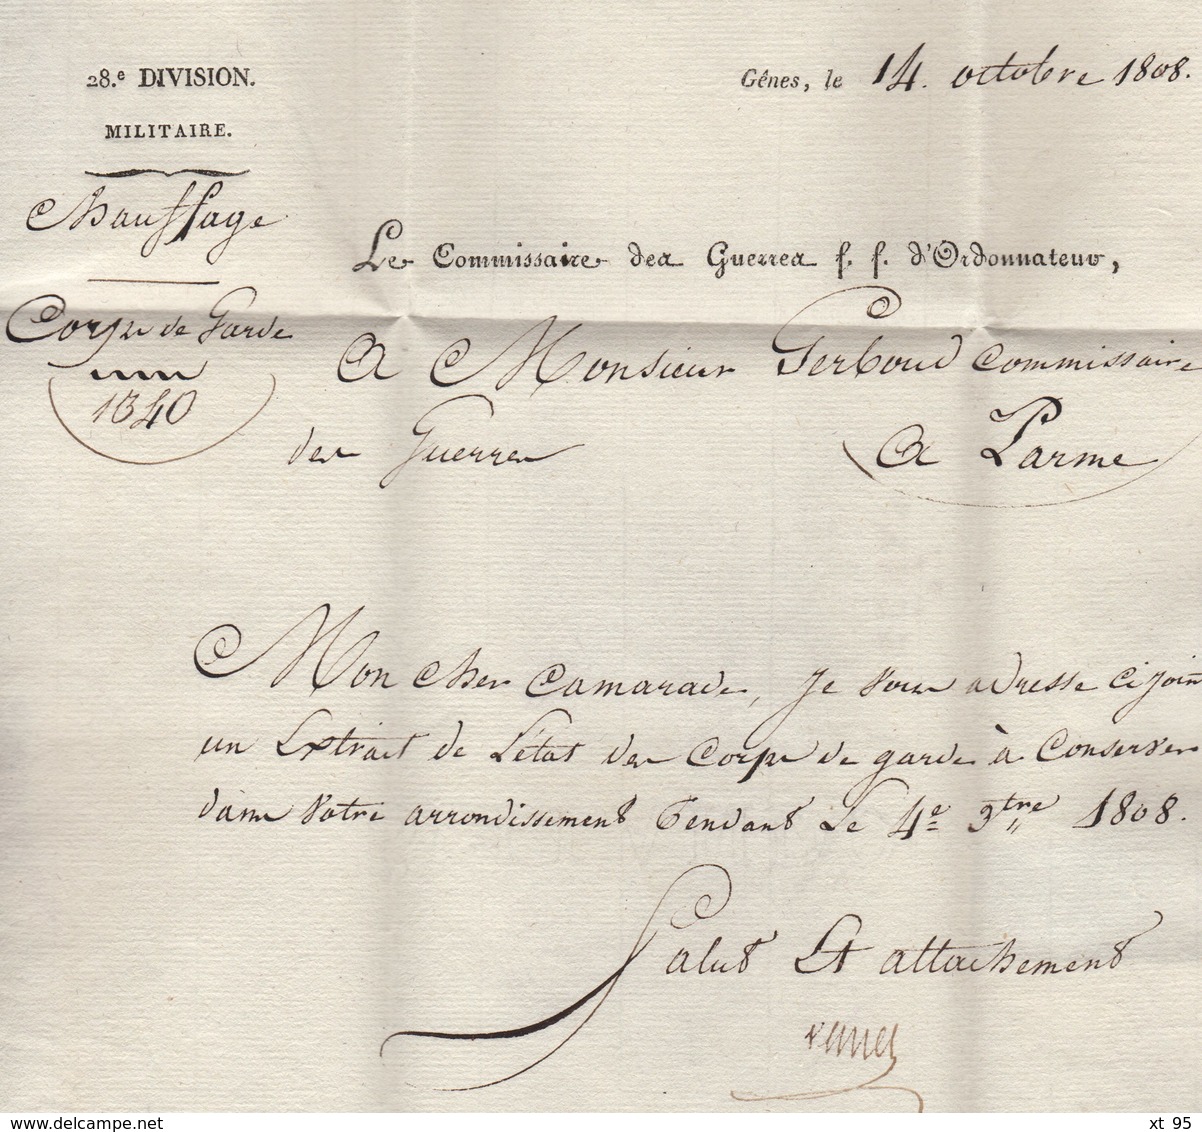 28.e DIVISION.
MILITAIRE.
Gênes, le 14. octobre 1808.
Chauffage
Le Commissaire des Guerres f. f. d'Ordonnateur,
Corps de Garde
1340
A Monsieur Gerboud Commissaire
des Guerres A Parme
Mon cher Camarade, Je vous adresse Ci joint
un Extrait de L'état des Corps de garde à Conserver
dans votre arrondissement Pendant Le 4e 3tre 1808.
Salut Et attachement
delcampe.net
xt 95